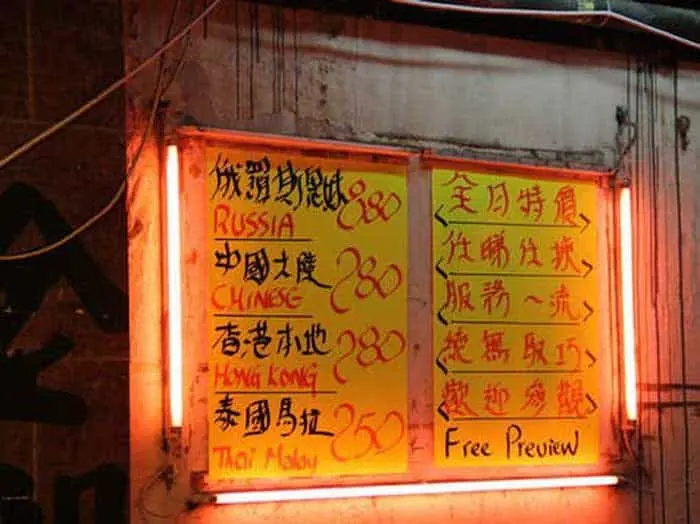 俄羅斯思妹 880
RUSSIA
中國大陸 280
CHINESE
香港本地 280
HONG KONG
泰國馬拉 250
Thai Malay
全日特價
任睇任揀
服務一流
絕無取巧
歡迎參觀
Free Preview